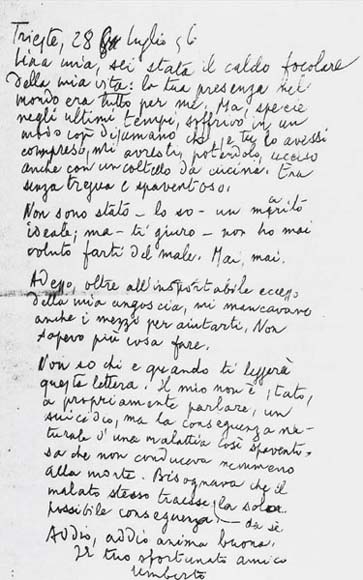 Trieste, 28 luglio 56
Lina mia, sei stata il caldo focolare
della mia vita: la tua presenza nel
mondo era tutto per me. Ma, specie
negli ultimi tempi, soffrivo in un
modo così disumano che, se tu lo avessi
compreso, mi avresti, potendolo, ucciso
anche con un coltello da cucina. Era
senza tregua e spaventoso.
Non sono stato – lo so – un marito
ideale; ma – ti giuro – non ho mai
voluto farti del male. Mai, mai.
Adesso, oltre all'insopportabile eccesso
della mia angoscia, mi mancavano
anche i mezzi per aiutarti. Non
sapevo più cosa fare.
Non so chi e quando ti leggerà
questa lettera. Il mio non è stato,
a propriamente parlare, un
suicidio, ma la conseguenza na-
turale d'una malattia così spavento-
sa che non conduceva nemmeno
alla morte. Bisognava che il
malato stesso traesse la sola
possibile conseguenza. da sè
Addio, addio anima buona.
Il tuo sfortunato amico
Umberto